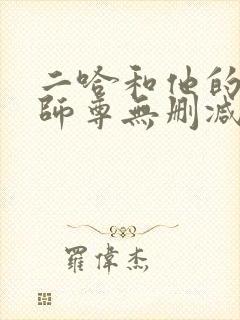 二哈和他的
師尊無刪減
羅偉杰